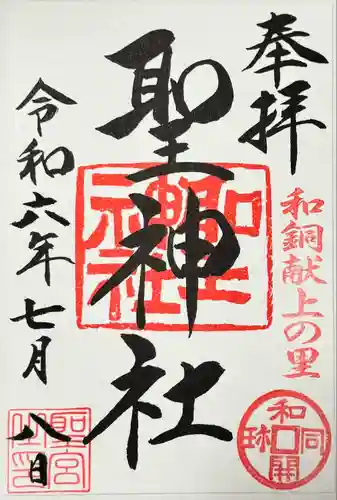 奉拝
和銅献上の里
和同開珎
聖神社
聖神社
令和六年七月八日